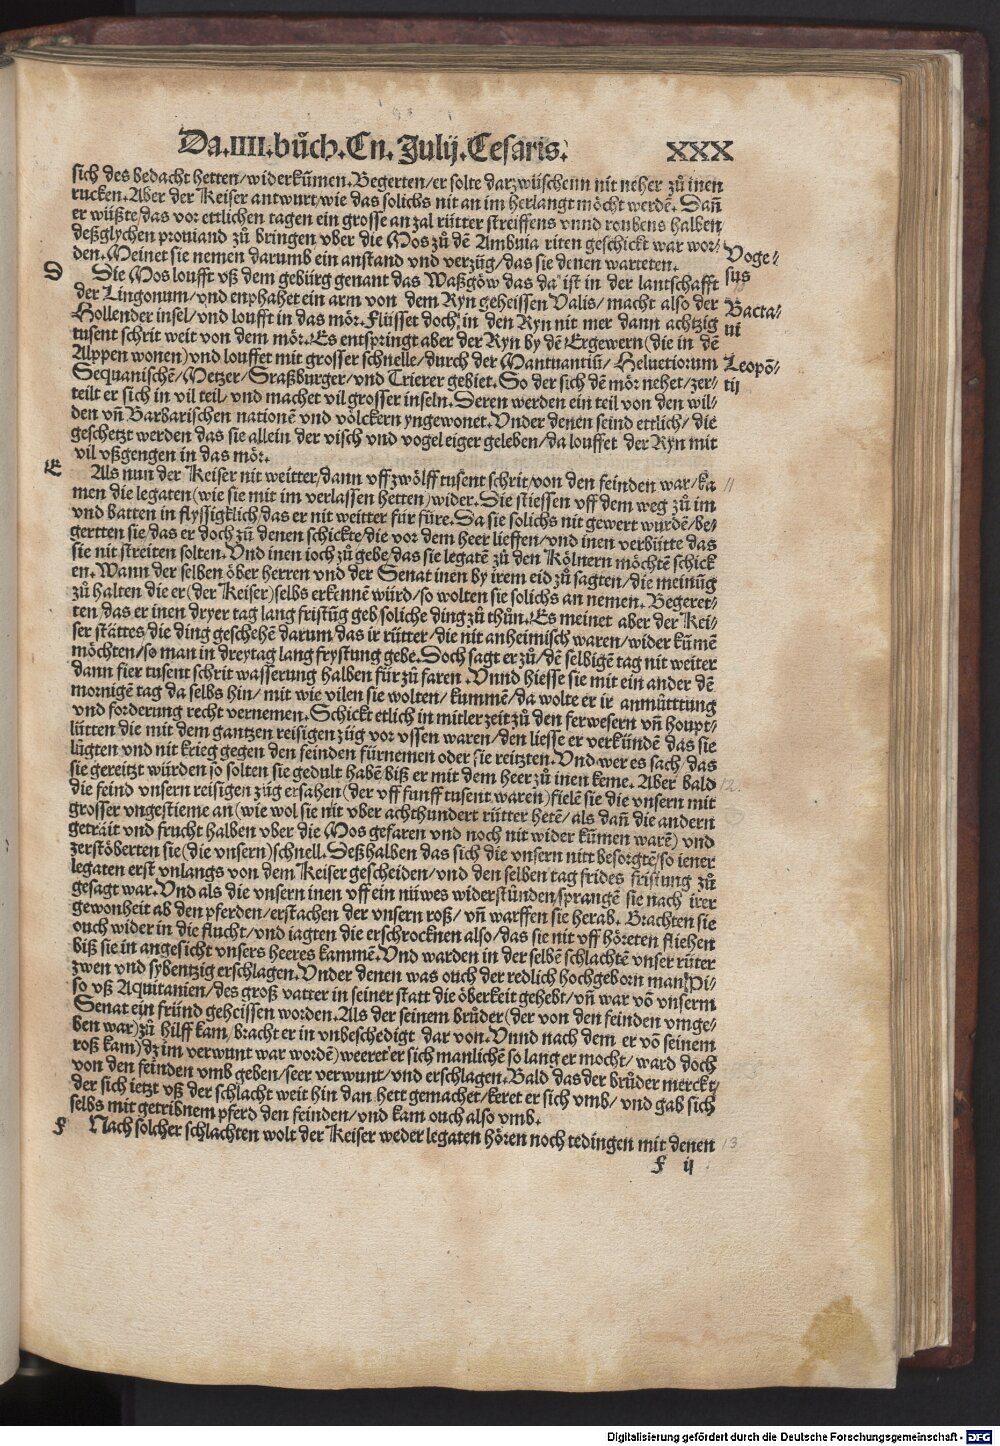 Da.IIII.bůch.Cn.Julij.Cesaris. XXX
sich des bedacht hetten/widerkům̃en.Begerten/er solte darzwüschenn nit neher zů inen
rucken.Aber der Keiser antwurt/wie das solichs nit an im herlangt möcht werdẽ. Dañ
er wüßte/das vor ettlichen tagen ein grosse an zal rütter streiffens vnnd roubens halben
deßglychen prouiand zů bringen vber die Mos zů dẽ Ambuia riten geschickt war wor-
den.Meinet sie nemen darumb ein anstand vnd verzüg/das sie denen warteten.
D Die Mos loufft vß dem gebürg genant das Waßgöw das da ist in der lantschafft
der Lingonum/vnd enphahet ein arm von dem Ryn geheissen Valis/macht also der
Hollender insel/vnd loufft in das mör.Flüsset doch in den Ryn nit mer dann achtzig
tusent schrit weit von dem mör.Es entspringt aber der Ryn by dẽ Ergewern(die in dẽ
Alppen wonen)vnd louffet mit grosser schnelle/durch der Mantuantiũ/Heluetiorum
Sequanischẽ/Metzer/Sraßburger/vnd Trierer gebiet.So der sich dẽ mör nehet/zer-
teilt er sich in vil teil/vnd machet vil grosser inseln.Deren werden ein teil von den wil-
den vñ Barbarischen nationẽ vnd völckern yngewonet.Vnder denen seind ettlich/die
geschetzt werden das sie allein der visch vnd vogel eiger geleben/da louffet der Ryn mit
vil vßgengen in das mör.
Voge-
sus
Bacta-
ui
Leopõ-
tij
E Als nun der Keiser nit weitter/dann vff zwölff tusent schrit/von den feinden war/ka
men die legaten(wie sie mit im verlassen hetten)wider.Die stiessen vff dem weg zů im 11
vnd batten in flyssigklich/das er nit weitter für füre.Da sie solichs nit gewert wurdẽ/be-
gertten sie/das er doch zů denen schickte/die vor dem heer lieffen/vnd inen verbütte das
sie nit streiten solten.Vnd inen ioch zů gebe/das sie legatẽ zů den Kölnern möchtẽ schick
en.Wann der selben öber herren vnd der Senat inen by irem eid zů sagten/die meinũg
zů halten die er(der Keiser)selbs erkennẽ würd/so wolten sie solichs an nemen.Begeret-
ten/das er inen dryer tag lang fristũg geb/soliche ding zů thůn.Es meinet aber der Kei-
ser stättes/die ding geschehẽ darum/das ir rütter/die nit anheimisch waren/wider kům̃ẽ
möchten/so man in dreytag lang frystung gebe.Doch sagt er zů/dẽ selbigẽ tag nit weiter
dann fier tusent schrit wasserung halben für zů faren.Vnnd hiesse sie mit ein ander dẽ
mornigẽ tag da selbs hin/mit wie vilen sie wolten/kummẽ/da wolte er ir anmůttung
vnd forderung recht vernemen.Schickt etlich in mitler zeit zů den ferwesern vñ houpt-
lütten die mit dem gantzen reisigen züg vor vssen waren/den liesse er verkündẽ das sie
lůgten vnd nit krieg gegen den feinden fürnemen oder sie reitzten.Vnd wer es sach das
sie gereitzt würden so solten sie gedult habẽ biß er mit dem heer zů inen keme. Aber bald 12.
die feind vnsern reisigen züg ersahen(der vff funff tusent waren)fielẽ sie die vnsern mit
grosser vngestieme an(wie wol sie nit vber achthundert rütter hetẽ/als dañ die andern
geträit vnd frucht halben vber die Mos gefaren vnd noch nit wider kům̃en warẽ) vnd
zerstöberten sie(die vnsern)schnell.Deßhalben das sich die vnsern nitt besorgtẽ/so iener
legaten erst vnlangs von dem Keiser gescheiden/vnd den selben tag frides fristung zů
gesagt war.Vnd als die vnsern inen vff ein nüwes widerstůnden/sprangẽ sie nach irer
gewonheit ab den pferden/erstachen der vnsern roß/vñ warffen sie herab. Brachten sie
ouch wider in die flucht/vnd iagten die erschrocknen also/das sie nit vff höreten fliehen
biß sie in angesicht vnsers heeres kammẽ.Vnd warden in der selbẽ schlachtẽ vnser rüter
zwen vnd sybentzig erschlagen.Vnder denen was ouch der redlich hochgeborn man Pi-
so vß Aquitanien/des groß vatter in seiner statt die öberkeit gehebt/vñ war võ vnserm
Senat ein fründ geheissen worden.Als der seinem brůder(der von den feinden vmge-
ben war)zů hilff kam/bracht er in vnbeschedigt dar von.Vnnd nach dem er võ seinem
roß kam)dz im verwunt war wordẽ)weeret er sich manlichẽ so lang er mocht/ward doch
von den feinden vmb geben/seer verwunt/vnd erschlagen.Bald das der brůder merckt/
der sich ietzt vß der schlacht weit hin dan hett gemachet/keret er sich vmb/vnd gab sich
selbs mit getribnem pferd den feinden/vnd kam ouch also vmb.
F Nach solcher schlachten wolt der Keiser weder legaten hören noch tedingen mit denen 13
F ij
Digitalisierung gefördert durch die Deutsche Forschungsgemeinschaft - DFG